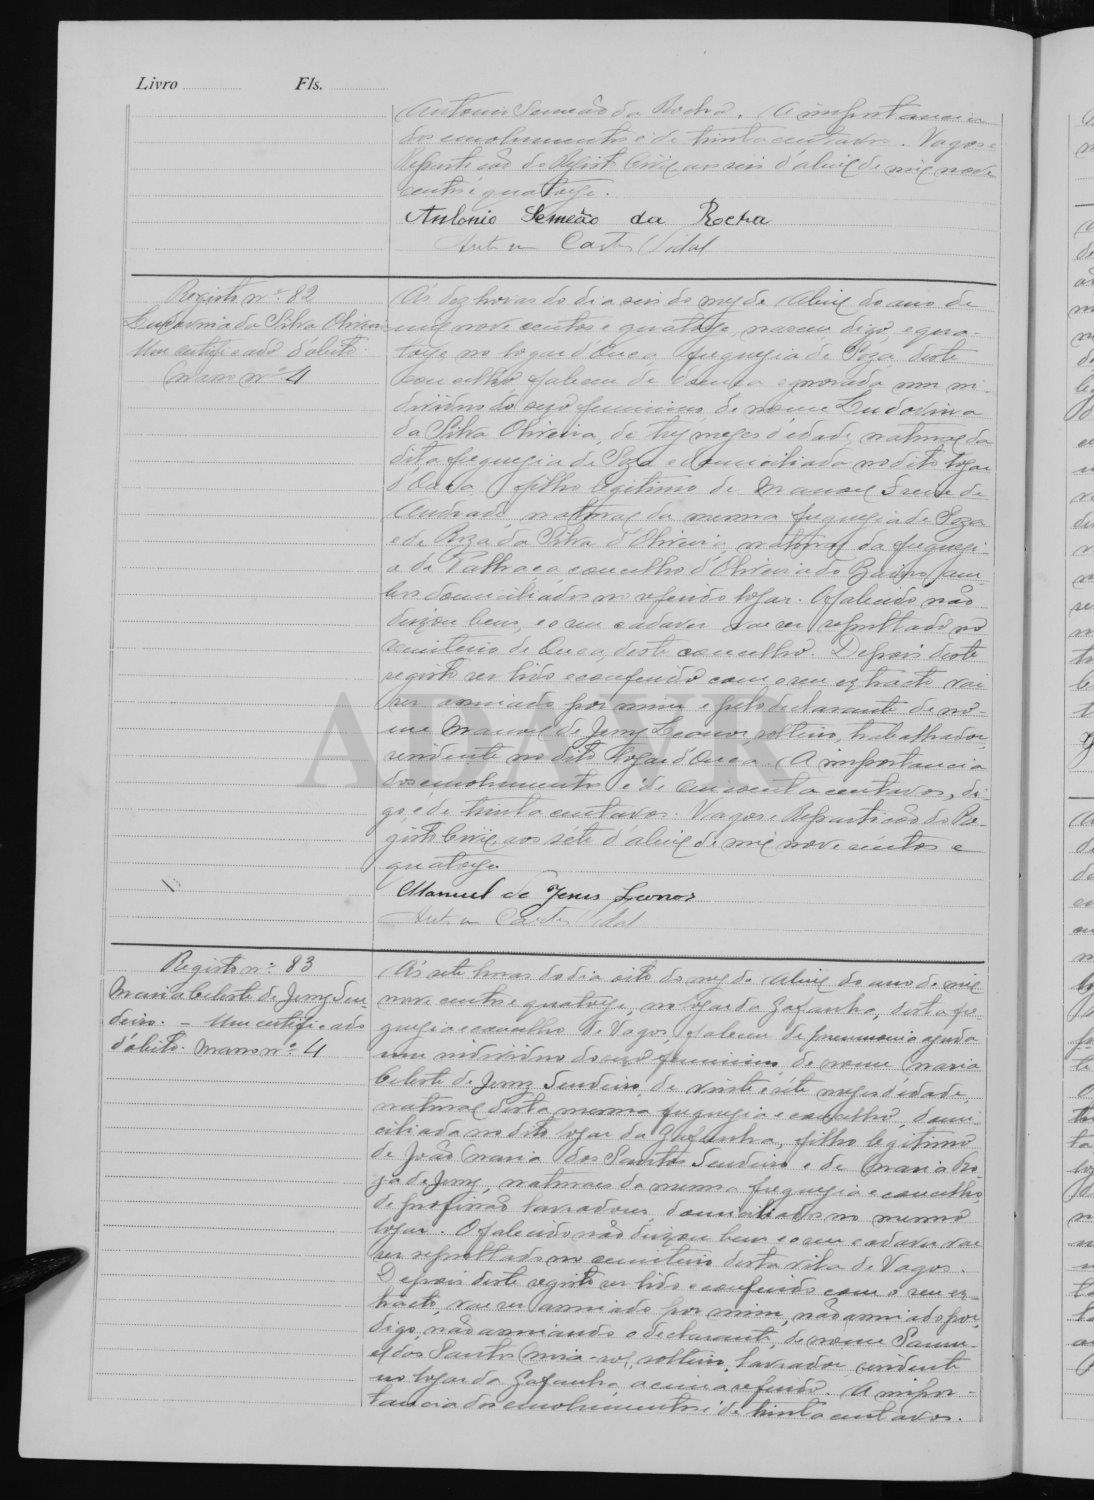 Livro Fls.
Antonio Semeão da Rocha. A importancia
dos emolumentos é de trinta centavos. Vagos e
Repartição do Registo Civil aos seis d'abril de mil nove
centos e quatorze.
Antonio Semeão da Rocha
Vidal
Registo nº 82
Ludovina da Silva Oliveira
Um certificado d'obito.
Maço nº 4
Ás dez horas do dia seis do mez de Abril do ano de
mil nove centos e quatorze, nasceu, digo, e qua-
torze no logar d'Ouca, freguezia de Soza, deste
concelho, faleceu de doença ignorada um in-
dividuo do sexo feminino, de nome Ludovina
da Silva Oliveira, de trez mezes d'edade, natural da
dita freguezia de Soza e domiciliada no dito logar
d'Ouca, filho legitimo de Manoel Freire de
Andrade, natural da mesma freguezia de Soza
e de Roza da Silva d'Oliveira, natural da freguezi-
a da Palhaça concelho d'Oliveira do Bairro, am-
bos domiciliados no referido logar. O falecido não
deixou bens, e o seu cadaver vae ser sepultado no
cemiterio de Ouca, deste concelho. Depois deste
registo ser lido e conferido com o seu extracto vai
ser assinado por mim e pelo declarante de no-
me Manoel de Jesus Leonor, solteiro, trabalhador,
residente no dito logar d'Ouca. A importancia
dos emolumentos é de cincoenta centavos, di-
go, é de trinta centavos. Vagos e Repartição do Re-
gisto Civil, aos sete d'abril de mil nove centos e
quatorze.
Manuel de Jesus Leonor
Vidal
Registo nº 83
Maria Celeste de Jesus Sen-
deiro. - Um certificado
d'obito. Maço nº 4
Ás sete horas do dia oito do mez de Abril do ano de mil
nove centos e quatorze, no logar da Gafanha, desta fre-
guezia e concelho de Vagos, faleceu de pneumonia aguda
um individuo do sexo feminino, de nome Maria
Celeste de Jesus Sendeiro, de vinte e sete mezes d'edade,
natural desta mesma freguezia e concelho, domi-
ciliada no dito logar da Gafanha, filho legitimo
de João Maria dos Santos Sendeiro e de Maria Ro-
za de Jesus, naturaes da mesma freguezia e concelho,
de profissão lavradores, domiciliados no mesmo
logar. O falecido não deixou bens e o seu cadaver vae
ser sepultado no cemiterio desta vila de Vagos.
Depois deste registo ser lido e conferido com o seu ex-
tracto, vae ser assinado por mim, não assinado por,
digo, não assinando o declarante, de nome Samu-
el dos Santos solteiro, lavrador, residente
no logar da Gafanha, acima referido. A impor-
tancia dos emolumentos é de trinta centavos.
ADAVR